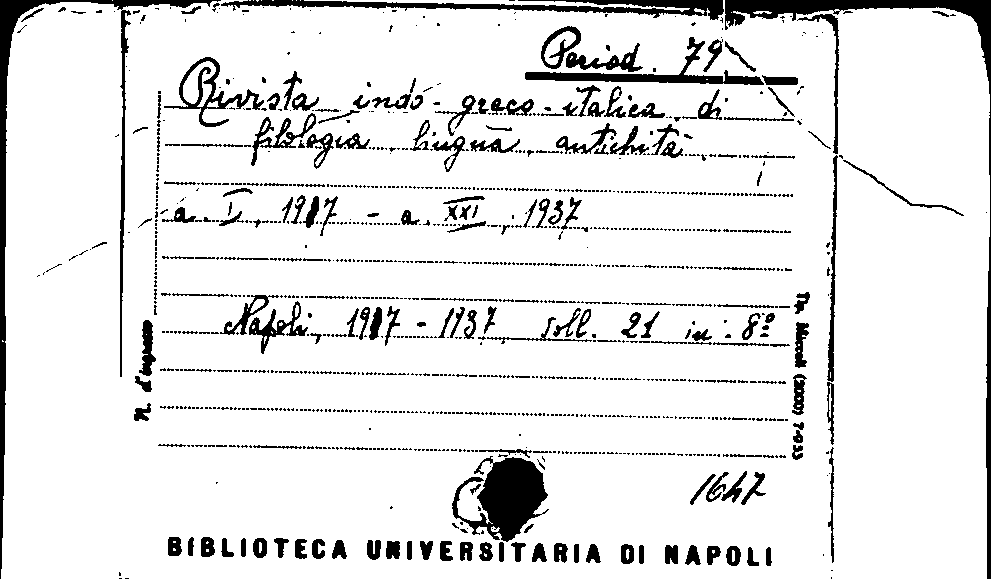 Period. 79
Rivista indo-greco-italica di
filologia, lingua, antichità.
a. I, 1917 - a. XXI, 1937.
Napoli, 1917 - 1937, voll. 21 in-8º
N. d'ingresso
1647
BIBLIOTECA UNIVERSITARIA DI NAPOLI